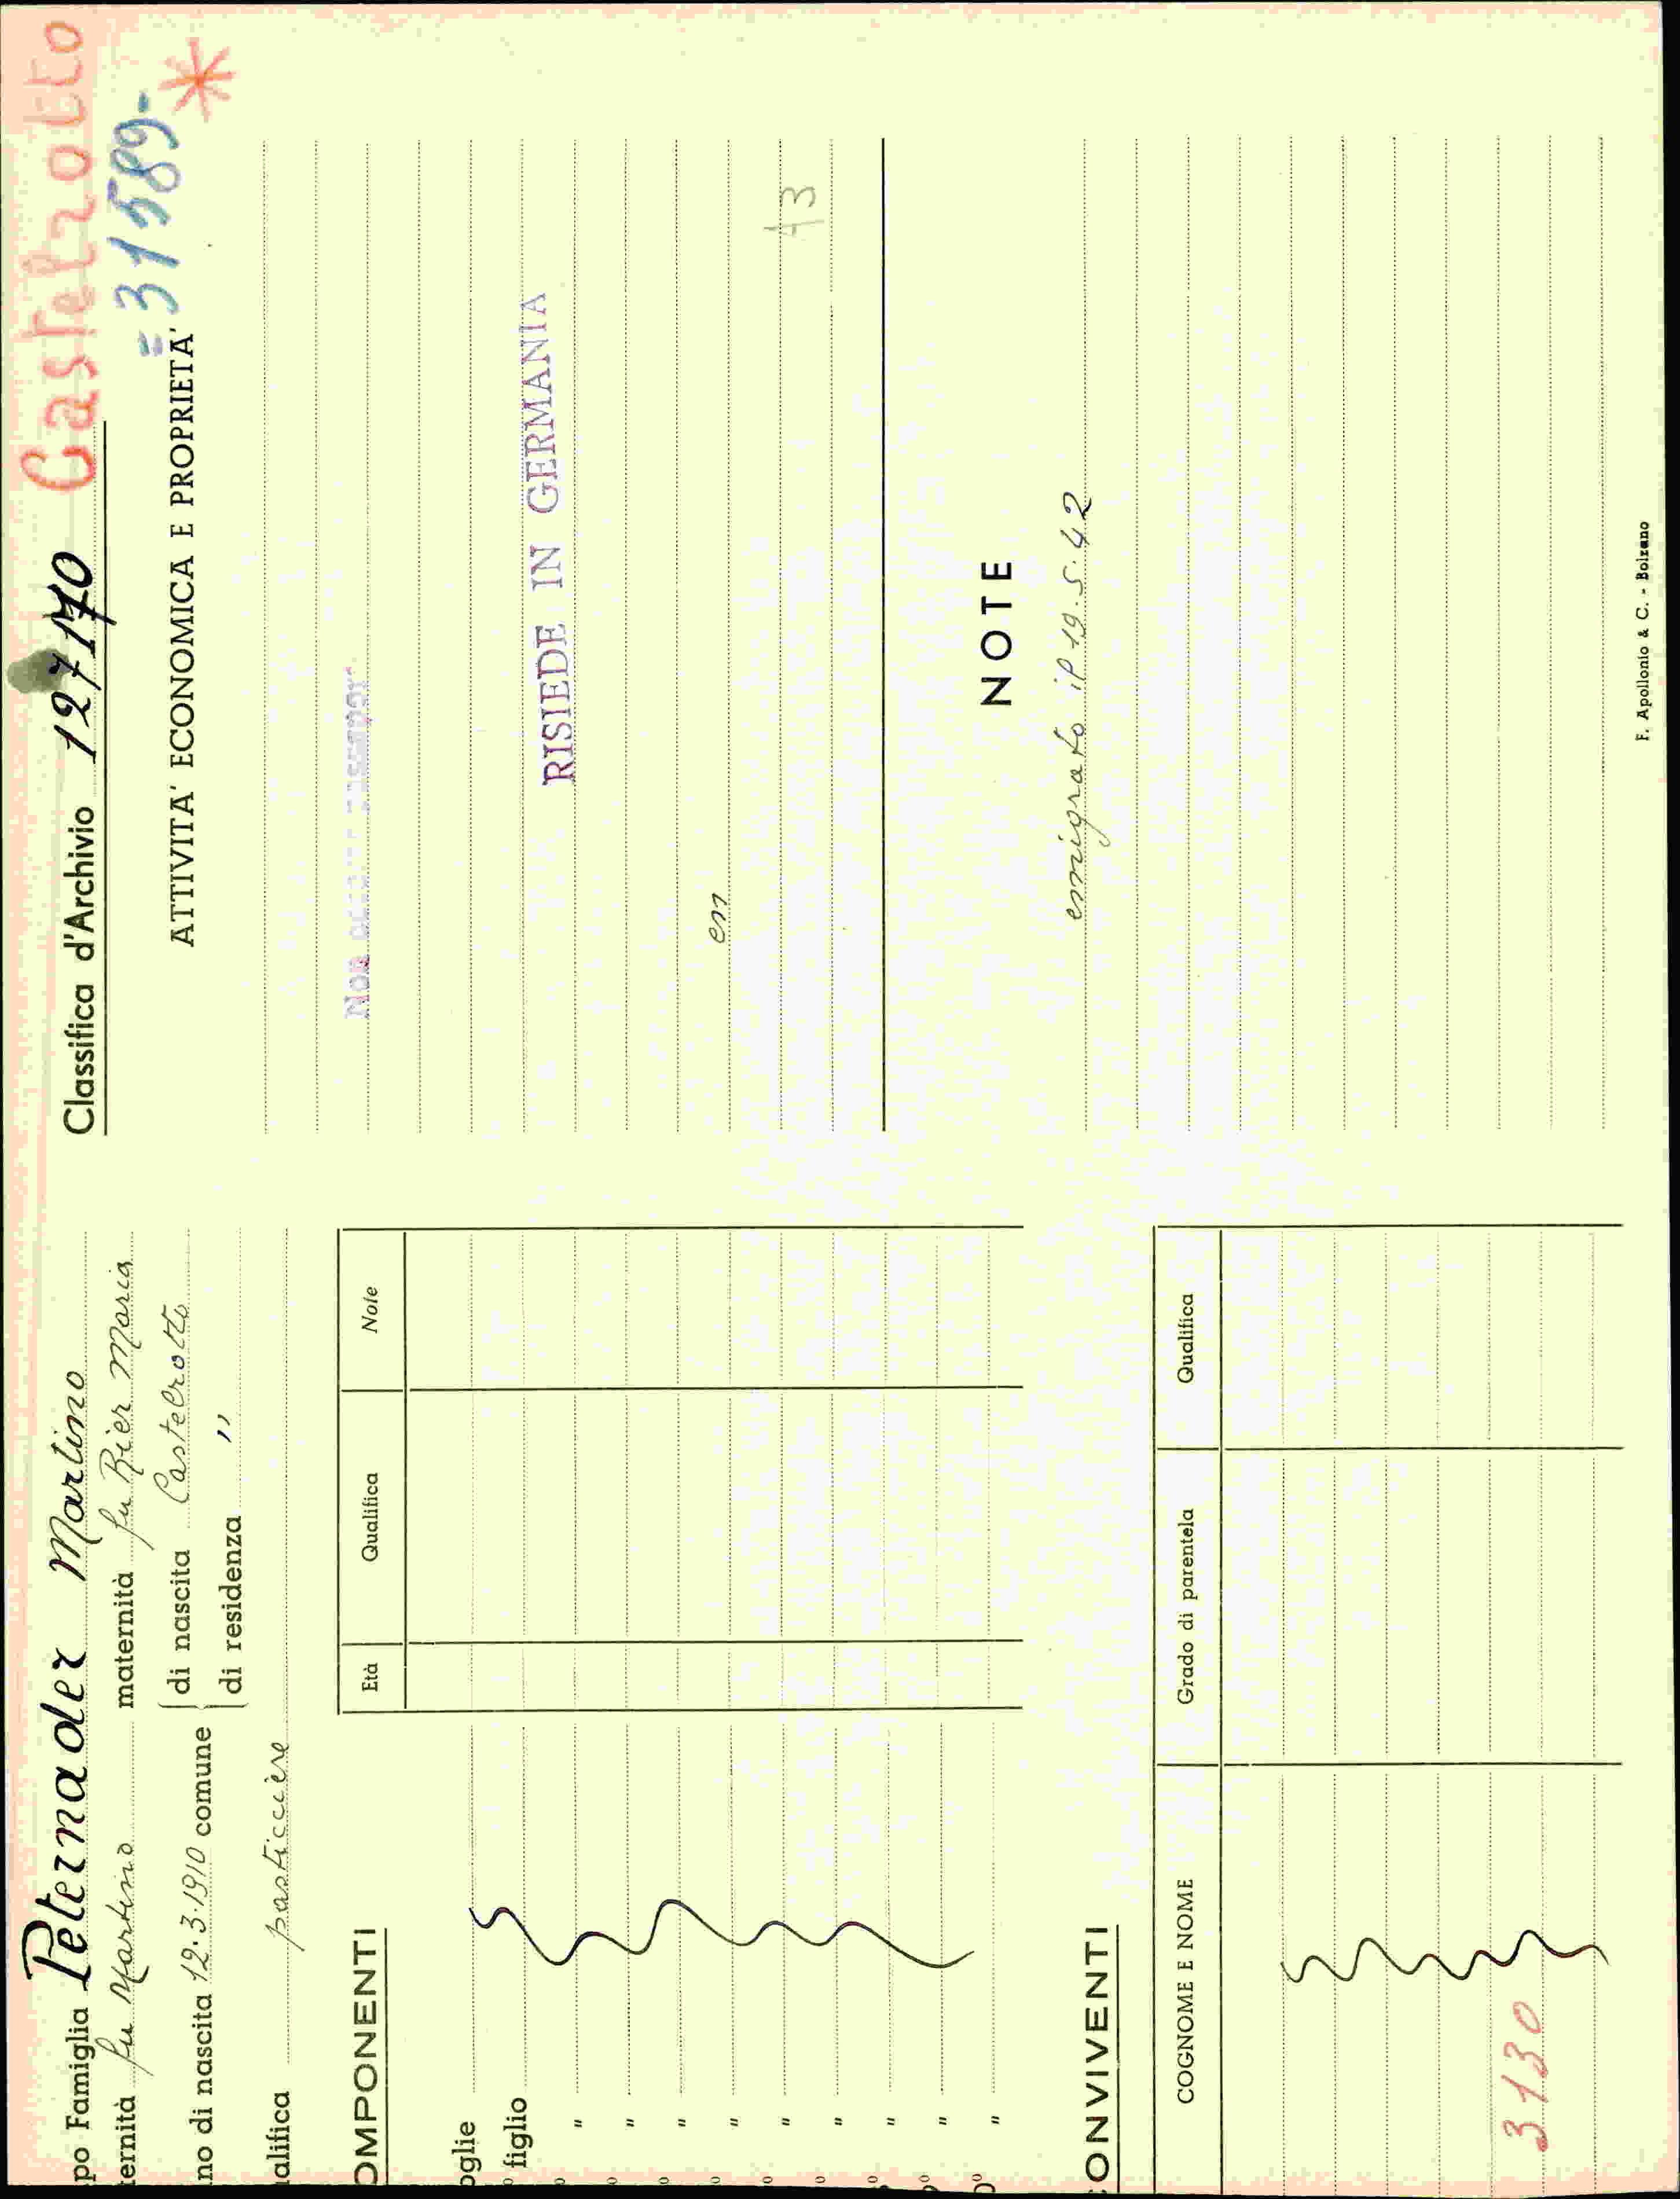 po Famiglia Peternader Martino
ternità fu Martino maternità fu Rier Maria
no di nascita 12.3.1910 comune
di nascita Castelrotto
di residenza "
alifica pasticciere
OMPONENTI
Età Qualifica Note
oglie
figlio
"
"
"
"
"
"
"
"
"
ONVIVENTI
COGNOME E NOME Grado di parentela Qualifica
3130
Classifica d'Archivio 127170 Castelrotto
= 31589-
ATTIVITA' ECONOMICA E PROPRIETA'
Non
RISIEDE IN GERMANIA
en
13
NOTE
emigrato il 19.5.42
F. Apollonio & C. - Bolzano